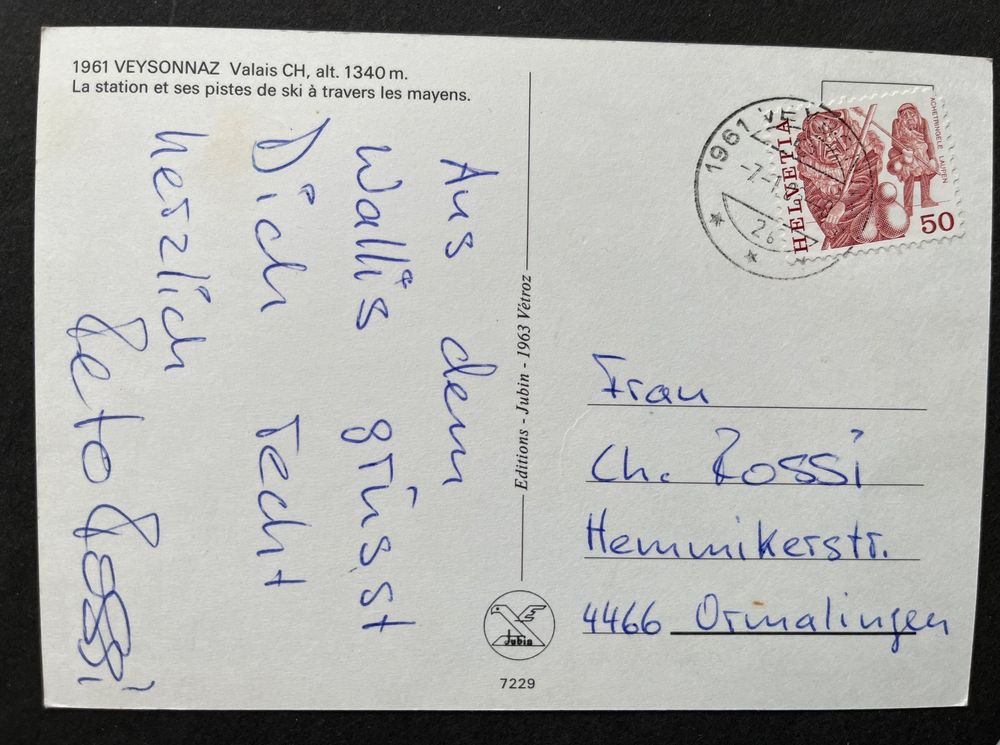 1961 VEYSONNAZ Valais CH, alt. 1340 m.
La station et ses pistes de ski à travers les mayens.
Aus dem
Wallis grüsst
Dich recht
herzlich
Beto Rossi
Editions - Jubin - 1963 Vétroz
Jubin
7229
1961
HELVETIA
ACHETRINGELE LAUPEN
50
Frau
Ch. Rossi
Hemmikerstr.
4466 Ormalingen